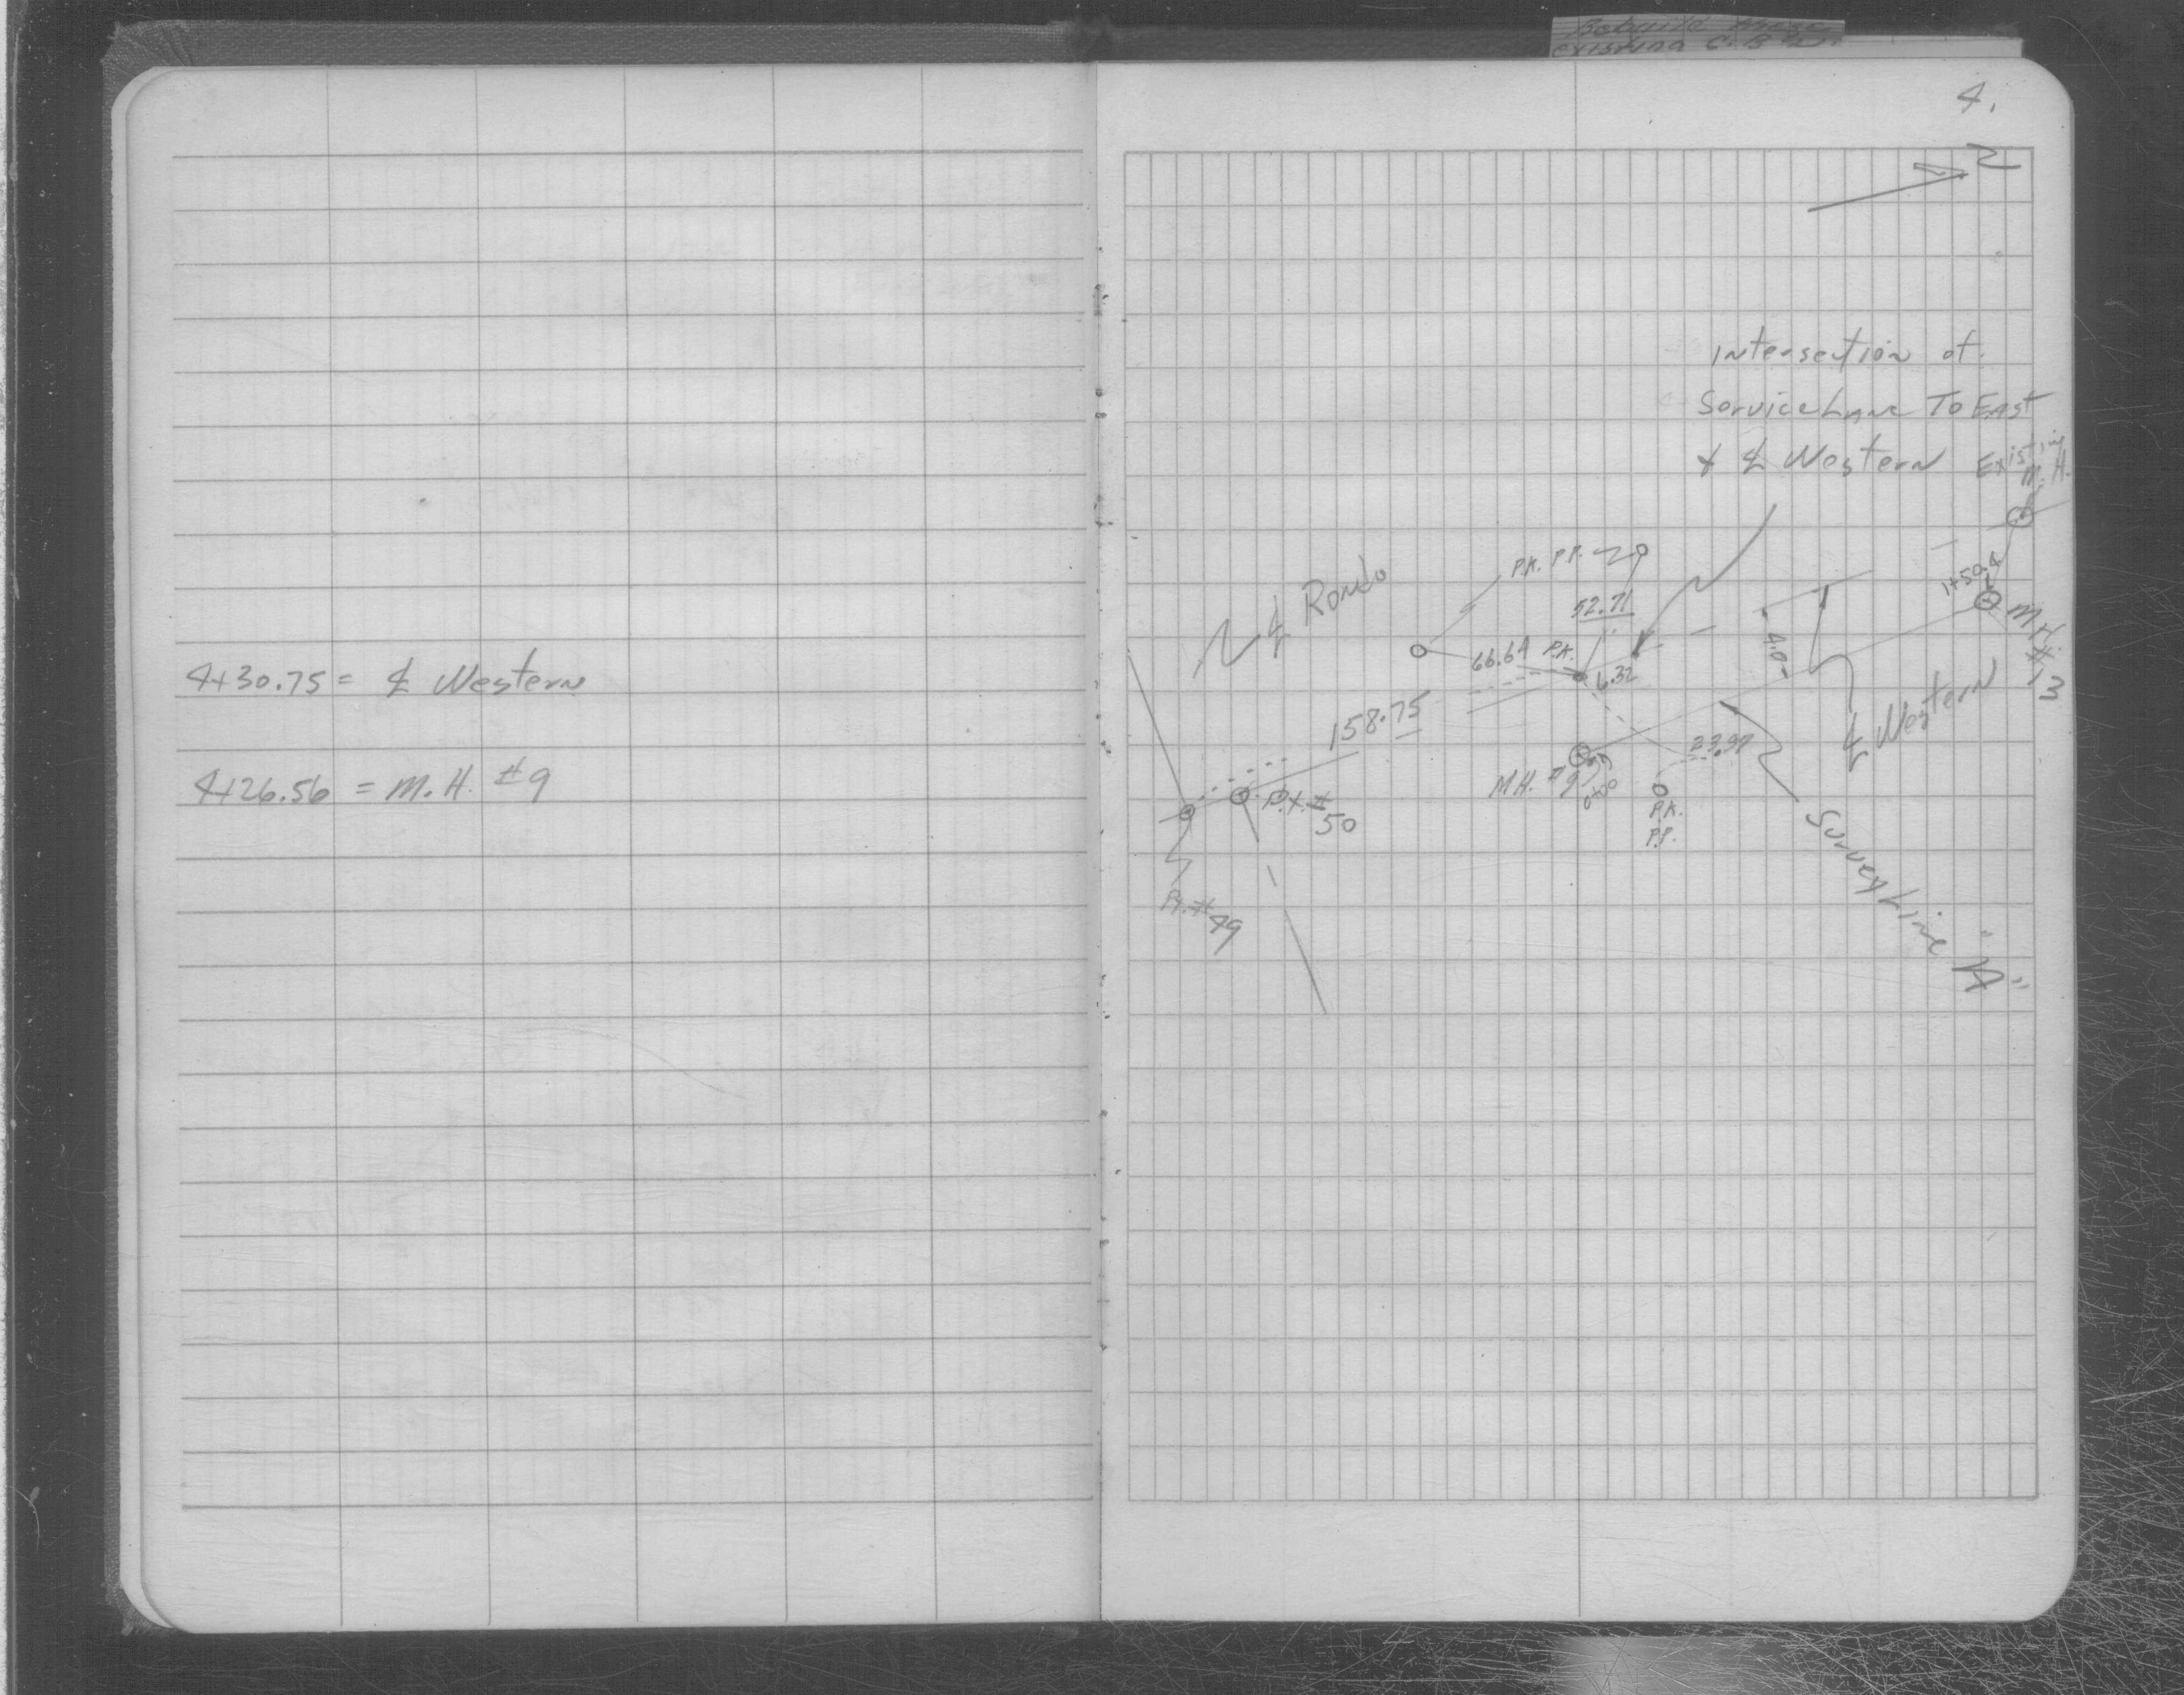 existing C.B.
4.
N
Intersection of
Service Lane To East
& ℄ Western
Existing
M.H.
P.K. P.P.
℄ Rondo
52.71
1+50.4
M.H. #13
66.64 P.K.
6.32
4.0
4+30.75 = ℄ Western
158.75
℄ Western
23.97
4+26.56 = M.H. #9
M.H. #9
0+00
P.K.
P.P.
Pt. #
50
Survey Line "A"
Pt. #49